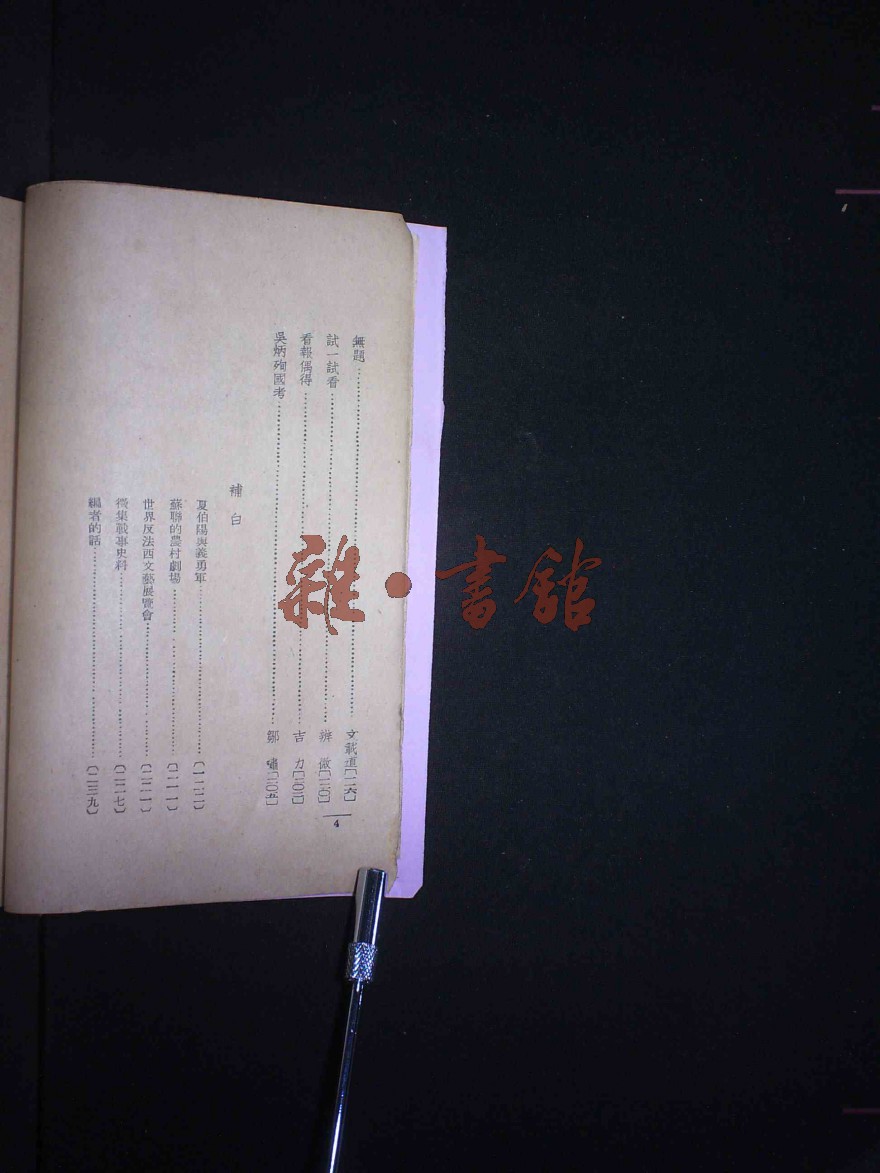 無題……文載道〔一一六〕
試一試看……辨微〔一二〇〕
看報偶得……吉力〔二〇三〕
吳炳殉國考……鄒嘯〔二〇五〕
補白
夏伯陽與義勇軍……〔一二二〕
蘇聯的農村劇場……〔二一一〕
世界反法西文藝展覽會……〔二二一〕
徵集戰事史料……〔二二七〕
編者的話……〔二三九〕
4
雜·書館